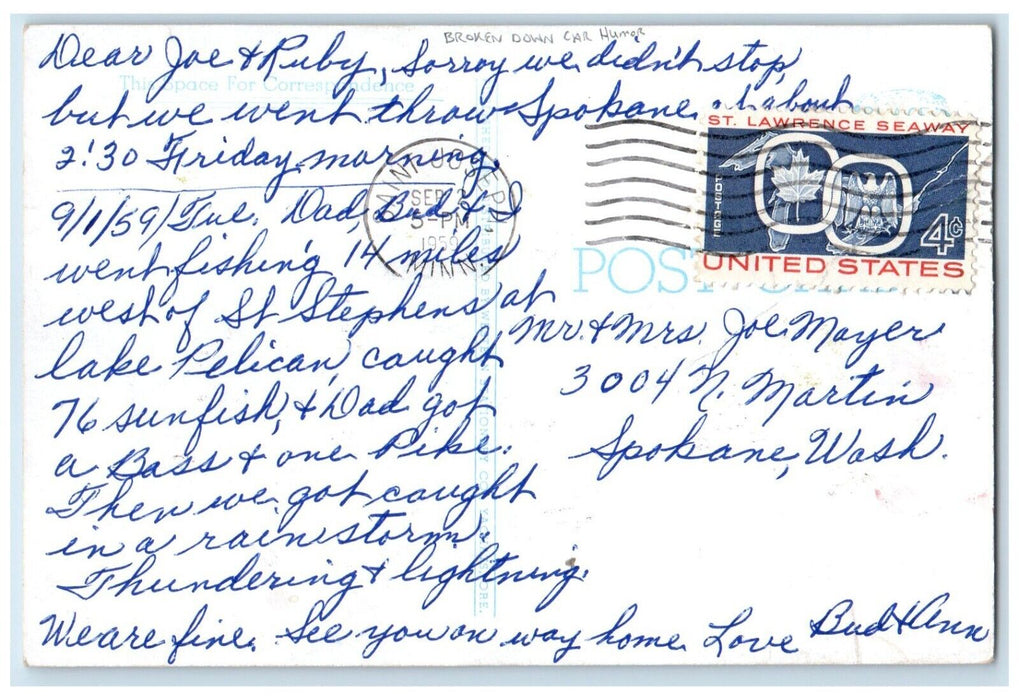 BROKEN DOWN CAR HUMOR
Dear Joe & Ruby, Sorroy we didn't stop,
This Space For Correspondence
but we went throw Spokane at about
2:30 Friday morning.
9/1/59/Tue. Dad, Bud & I
went fishing 14 miles
west of St Stephens at
lake Pelican, caught
76 sunfish, & Dad got
a Bass & one Pike.
Then we got caught
in a rainstorm.
Thundering & lightning.
We are fine. See you on way home. Love Bud & Ann
SAINT JOSEPH
SEP 2
3-PM
1959
MINN.
ST. LAWRENCE SEAWAY
POSTAGE
4¢
UNITED STATES
POST CARD
Mr. & Mrs. Joe Mayer
3004 N. Martin
Spokane, Wash.